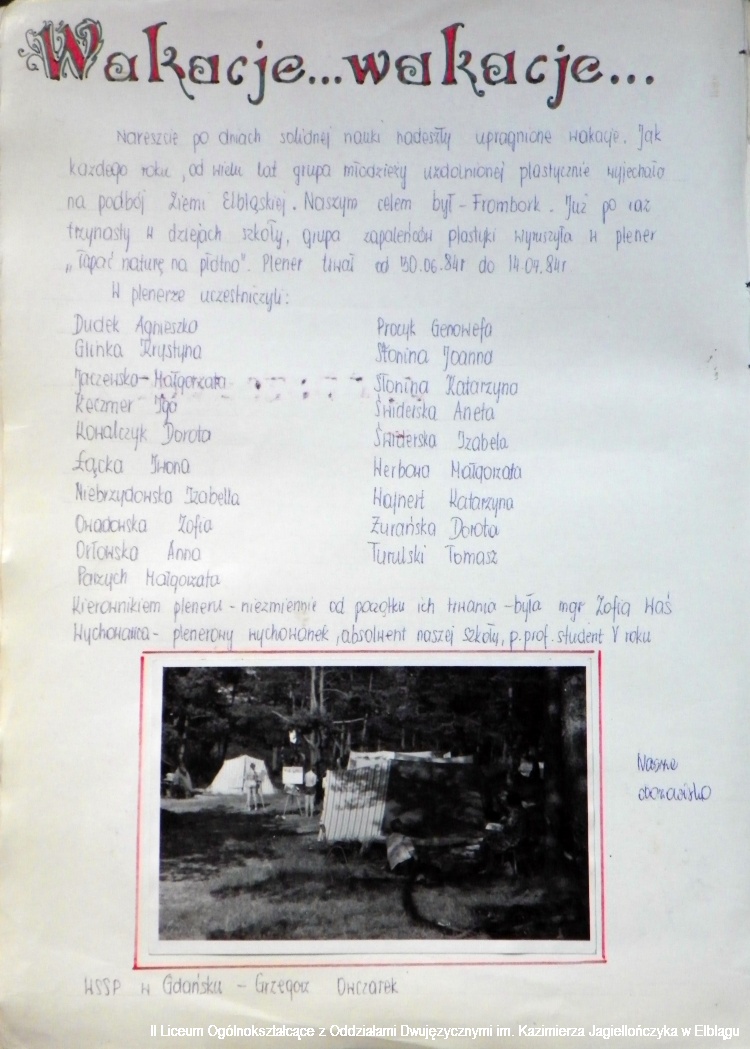 Wakacje...wakacje...
Nareszcie po dniach solidnej nauki nadeszły upragnione wakacje. Jak
każdego roku, od wielu lat grupa młodzieży uzdolnionej plastycznie wyjechała
na podbój Ziemi Elbląskiej. Naszym celem był - Frombork. Już po raz
trzynasty w dziejach szkoły, grupa zapaleńców plastyki wyruszyła w plener
„Łapać naturę na płótno". Plener trwał od 30.06.84r do 14.07.84r
W plenerze uczestniczyli:
Dudek Agnieszka
Glinka Krystyna
Jaczewska-Małgorzata
Keczmer Iga
Kowalczyk Dorota
Łącka Iwona
Niebrzydowska Izabella
Owadowska Zofia
Orłowska Anna
Parzych Małgorzata
Procyk Genowefa
Słonina Joanna
Słonina Katarzyna
Świderska Aneta
Świderska Izabela
Werbowa Małgorzata
Wajnert Katarzyna
Żurańska Dorota
Turulski Tomasz
Kierownikiem pleneru - niezmiennie od początku ich trwania - była mgr Zofia Waś
Wychowawca - plenerowy wychowanek, absolwent naszej szkoły, p. prof. student V roku
Nasze
obozowisko
WSSP w Gdańsku - Grzegorz Owczarek
II Liceum Ogólnokształcące z Oddziałami Dwujęzycznymi im. Kazimierza Jagiellończyka w Elblągu